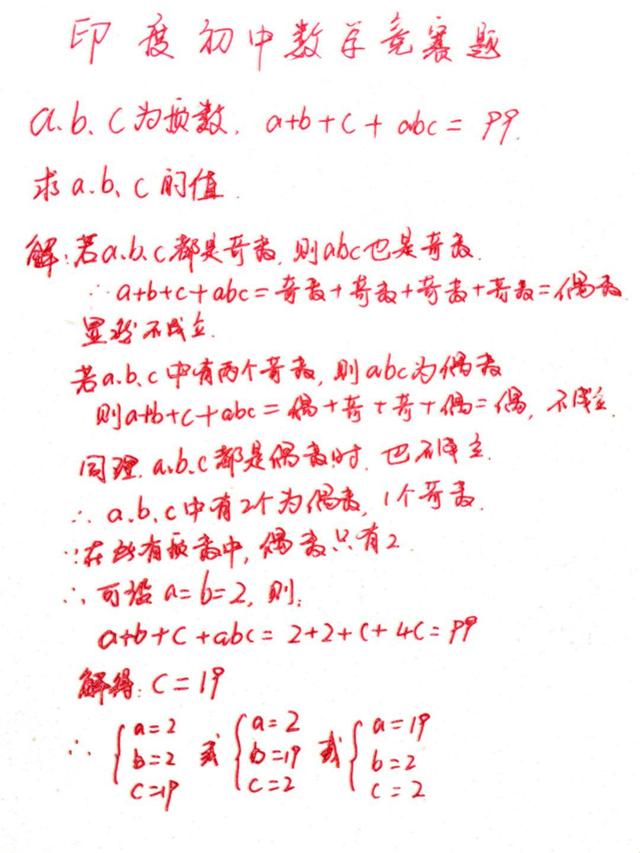 印度初中数学竞赛题
a.b.c为质数. a+b+c+abc=99.
求a.b.c的值.
解:若a.b.c都是奇数,则abc也是奇数.
∴a+b+c+abc=奇数+奇数+奇数+奇数=偶数.
显然不成立.
若a.b.c中有两个奇数,则abc为偶数
则a+b+c+abc=偶+奇+奇+偶=偶,不成立.
同理.a.b.c都是偶数时.也不成立.
∴a.b.c中有2个为偶数,1个奇数.
∵在所有质数中,偶数只有2.
∴可设a=b=2,则:
a+b+c+abc=2+2+c+4c=99
解得:c=19
∴{a=2 b=2 c=19 或{a=2 b=19 c=2 或{a=19 b=2 c=2